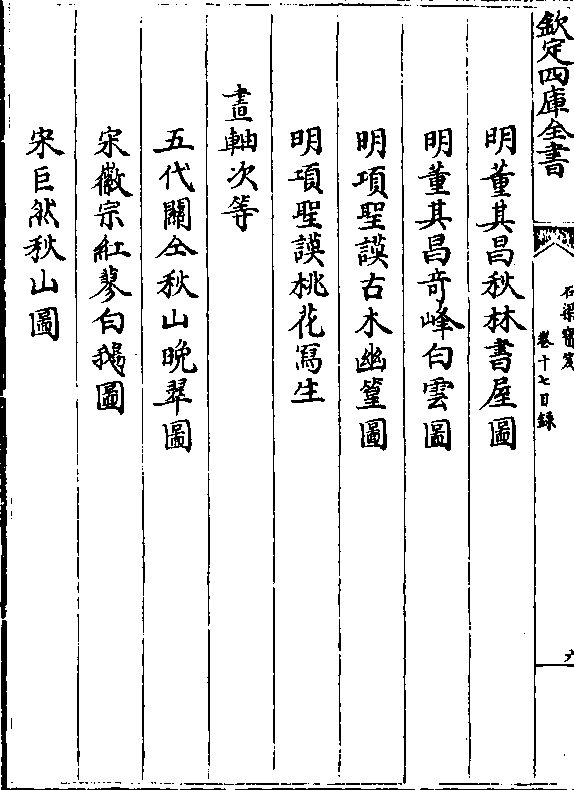 欽定四庫全書
石渠寶笈
卷十七目錄
六
明董其昌秋林書屋圖
明董其昌奇峰白雲圖
明項聖謨古木幽篁圖
明項聖謨桃花寫生
畫軸次等
五代關仝秋山晚翠圖
宋徽宗紅蓼白鵝圖
宋巨然秋山圖